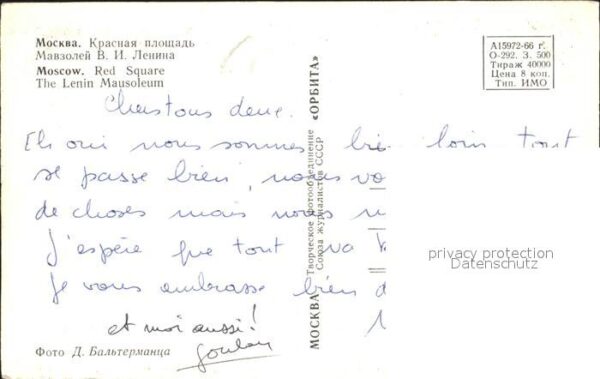 Москва. Красная площадь
Мавзолей В. И. Ленина
Moscow. Red Square
The Lenin Mausoleum
А15972-66 г.
О-292. З. 500
Тираж 40000
Цена 8 коп.
Тип. ИМО
Chers tous deux.
Eh oui nous sommes bie loin tout
se passe bien, nous vo
de choses mais nous n
J'espère que tout va
je vous embrasse bien d
et moi aussi!
МОСКВА Творческое фотообъединение Союза журналистов СССР «ОРБИТА»
privacy protection
Datenschutz
Фото Д. Бальтерманца